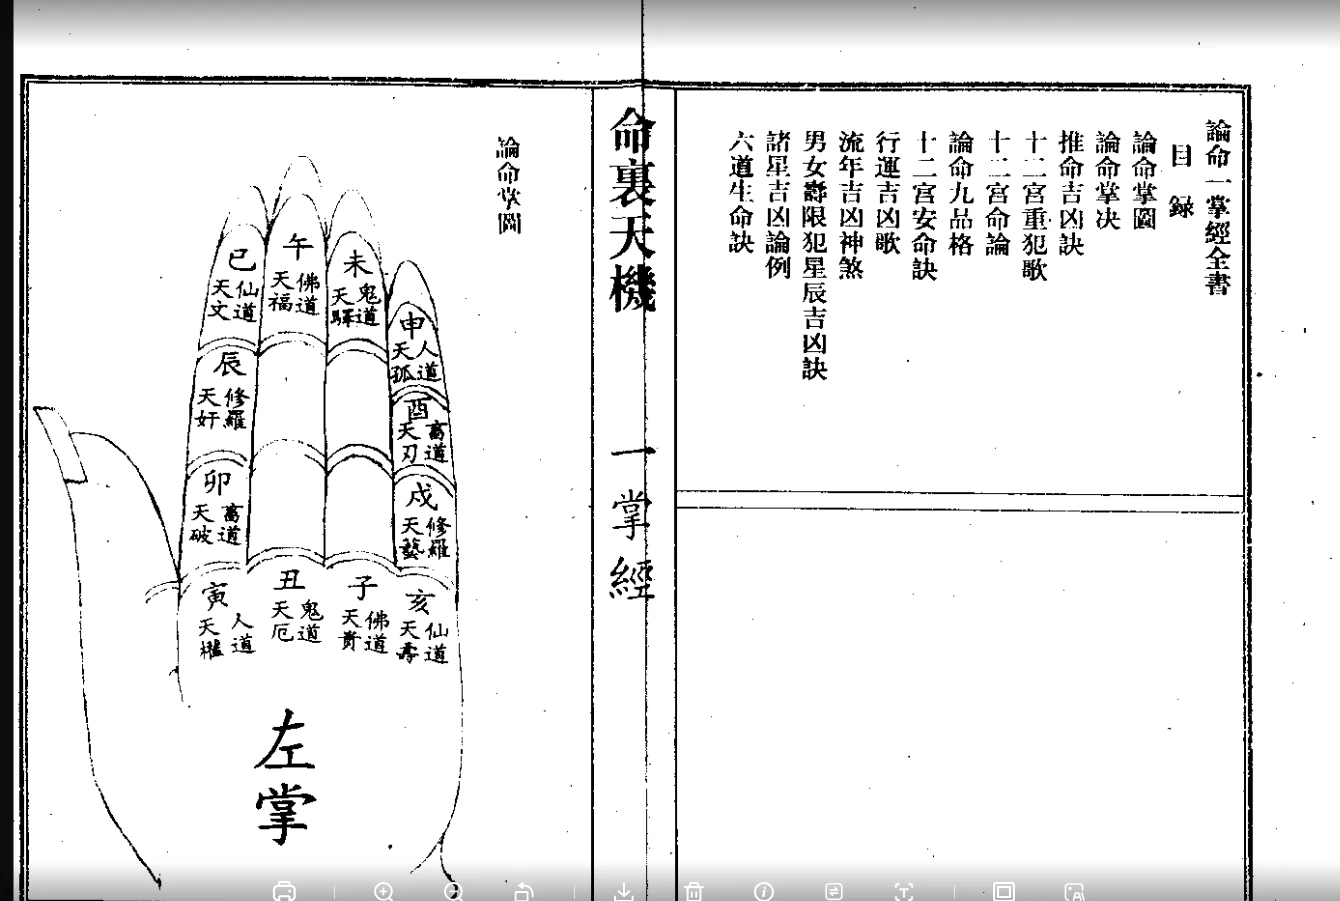 論命一掌經全書
目錄
論命掌圖
論命掌决
推命吉凶訣
十二宮重犯歌
十二宮命論
論命九品格
十二宮安命訣
行運吉凶歌
流年吉凶神煞
男女壽限犯星辰吉凶訣
諸星吉凶論例
六道生命訣
命裏天機
一掌經
論命掌圖
子
佛道
天貴
丑
鬼道
天厄
寅
人道
天權
卯
畜道
天破
辰
修羅
天奸
巳
仙道
天文
午
佛道
天福
未
鬼道
天驛
申
人道
天孤
酉
畜道
天刃
戌
修羅
天藝
亥
仙道
天壽
左掌